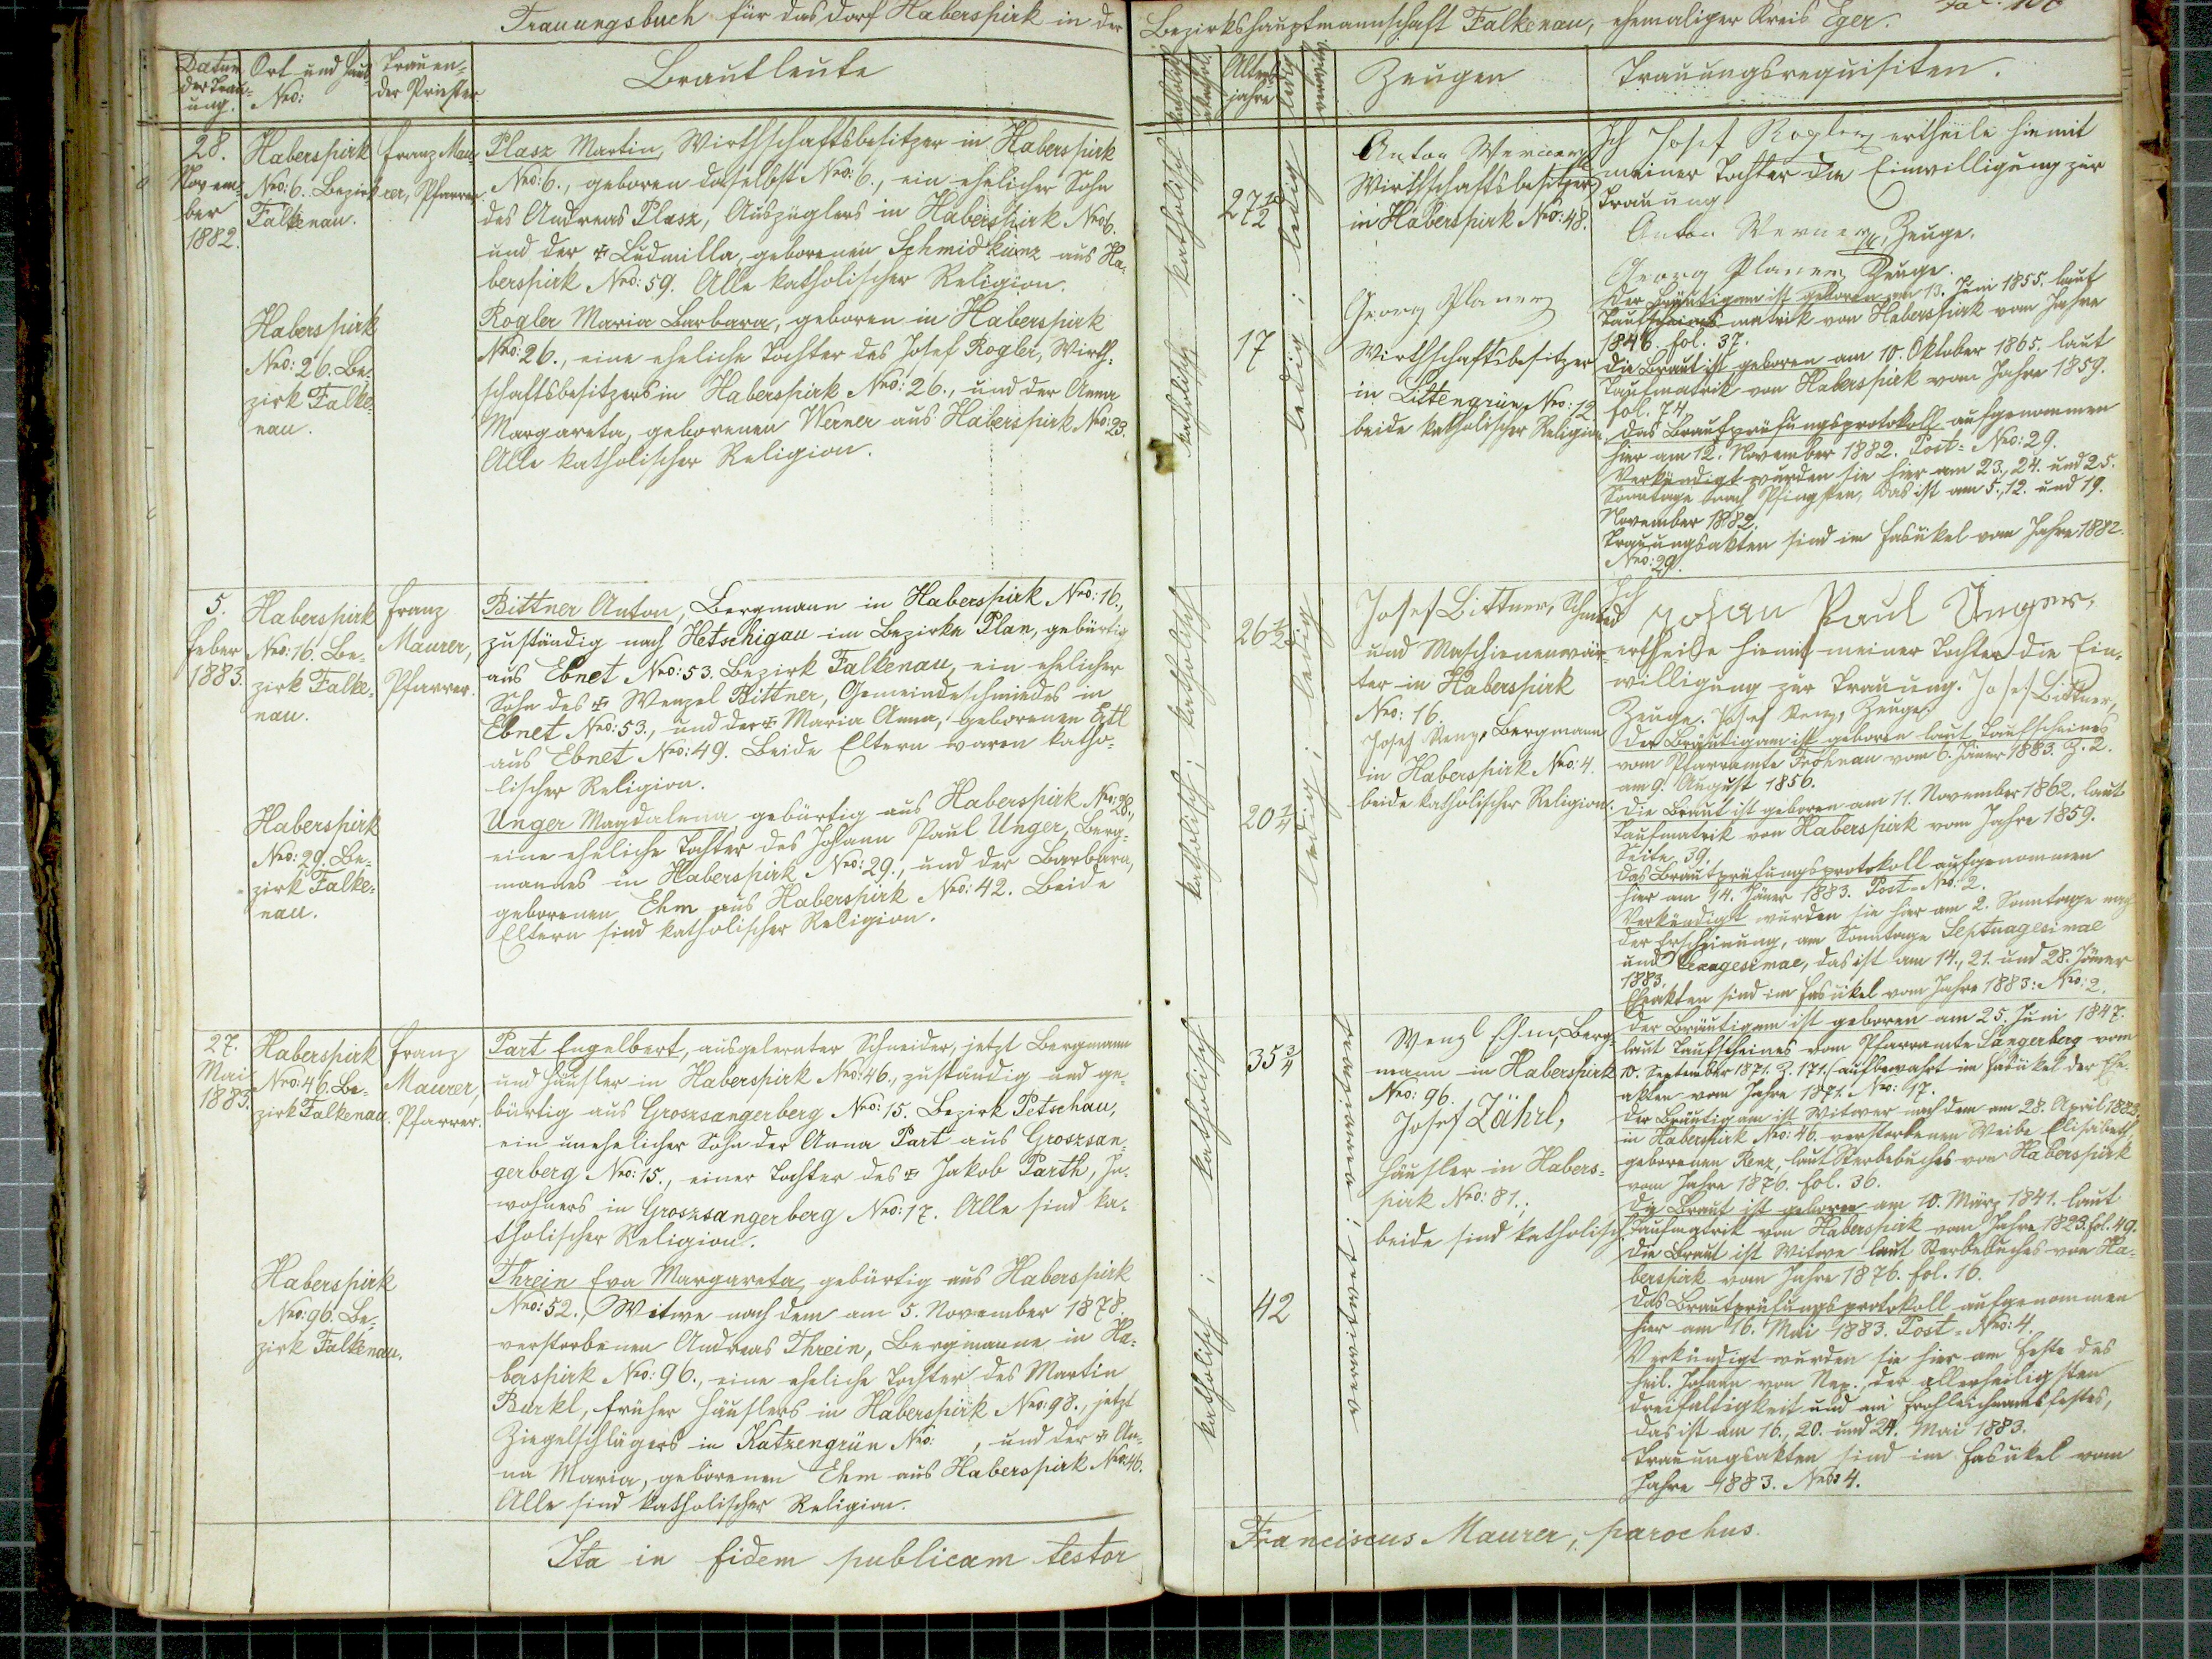 Trauungsbuch für das Dorf Haberspirk in der
Bezirkshauptmannschaft Falkenau, ehemaliger Kreis Eger.
Datum der Trau-ung.
Ort und Haus Nro:
Trauen-der Priester.
Brautleute
katholisch
Alters jahre
ledig
Zeugen
Trauungsrequisiten.
28.
Novem-
ber
1882.
Haberspirk
Nro: 6. Bezirk
Falkenau.
Franz Mau-
rer, Pfarrer.
Plasz Martin, Wirthschaftsbesitzer in Haberspirk
Nro: 6., geboren daselbst Nro: 6., ein ehelicher Sohn
des Andreas Plasz, Auszüglers in Haberspirk Nro 6.
und der ✠ Ludmilla, geborenen Schmidkunz aus Ha-
berspirk Nro: 59. Alle katholischer Religion.
Haberspirk
Nro: 26. Be-
zirk Falke-
nau.
Rogler Maria Barbara, geboren in Haberspirk
Nro: 26., eine eheliche Tochter des Josef Rogler, Wirth-
schaftsbesitzers in Haberspirk Nro: 26., und der Anna
Margareta, geborenen Werner aus Haberspirk Nro: 23.
Alle katholischer Religion.
katholisch
27
ledig
katholisch
17
ledig
Anton Werner
Wirthschaftsbesitzer
in Haberspirk Nro: 48.
Georg Planer
Wirthschaftsbesitzer
in Littengrün Nro: 12
beide katholischer Religion.
Ich Josef Rogler ertheile hiemit
meiner Tochter die Einwilligung zur
Trauung
Anton Werner, Zeuge.
Georg Planer Zeuge.
Der Bräutigam ist geboren am 13. Juni 1855. laut
matrik von Haberspirk vom Jahre
1846. fol. 37.
Die Braut ist geboren am 10. Oktober 1865. laut
Taufmatrik von Haberspirk vom Jahre 1859.
fol. 74.
Das Brautprüfungsprotokoll aufgenommen
hier am 12. November 1882. Post-Nro: 29.
Verkündigt wurden sie hier am 23., 24. und 25.
Sonntage nach Pfingsten, das ist am 5., 12. und 19.
November 1882.
Trauungsakten sind im Fasükel vom Jahre 1882.
Nro: 29.
5.
Feber
1883.
Haberspirk
Nro: 16. Be-
zirk Falke-
nau.
Franz
Maurer,
Pfarrer.
Bittner Anton, Bergmann in Haberspirk Nro: 16.,
zuständig nach Hetschigau im Bezirke Plan, gebürtig
aus Ebnet Nro: 53. Bezirk Falkenau, ein ehelicher
Sohn des ✠ Wenzel Bittner, Gemeindeschmiedes in
Ebnet Nro: 53., und der ✠ Maria Anna, geborenen Ertl
aus Ebnet Nro: 49. Beide Eltern waren katho-
lischer Religion.
Haberspirk
Nro: 29. Be-
zirk Falke-
nau.
Unger Magdalena gebürtig aus Haberspirk Nro: 28.,
eine eheliche Tochter des Johann Paul Unger, Berg-
mannes in Haberspirk Nro: 29., und der Barbara,
geborenen Ehm aus Haberspirk Nro: 42. Beide
Eltern sind katholischer Religion.
katholisch;
26 1/2
ledig;
katholisch
20 1/4
ledig
Josef Bittner, Schmied
und Maschienenwär-
ter in Haberspirk
Nro: 16.
Josef Renz, Bergmann
in Haberspirk Nro: 4.
beide katholischer Religion.
Ich
Johan Paul Unger,
ertheile hiemit meiner Tochter die Ein-
willigung zur Trauung. Josef Bittner,
Zeuge. Josef Renz, Zeuge.
Der Bräutigam ist geboren laut Taufscheines
vom Pfarramte Frohnau vom 6. Jäner 1883. Z. 2.
am 9. August 1856.
Die Braut ist geboren am 11. November 1862. laut
Taufmatrik von Haberspirk vom Jahre 1859.
Seite 39.
Das Brautprüfungsprotokoll aufgenommen
hier am 14. Jäner 1883. Post-Nro: 2.
Verkündigt wurden sie hier am 2. Sonntage nach
der Erscheinung, am Sonntage Septuagesimae
und Sexagesimae, das ist am 14., 21. und 28. Jäner
1883.
Eheakten sind im Fasükel vom Jahre 1883: Nro: 2.
27.
Mai
1883.
Haberspirk
Nro: 46. Be-
zirk Falkenau.
Franz
Maurer,
Pfarrer.
Part Engelbert, ausgelernter Schneider, jetzt Bergmann
und Häusler in Haberspirk Nro: 46., zuständig und ge-
bürtig aus Groszsangerberg Nro: 15. Bezirk Petschau,
ein unehelicher Sohn der Anna Part aus Groszsan-
gerberg Nro: 15., einer Tochter des ✠ Jakob Parth, In-
wohners in Groszsangerberg Nro: 17. Alle sind ka-
tholischer Religion.
Haberspirk
Nro: 96. Be-
zirk Falkenau.
Threin Eva Margareta, gebürtig aus Haberspirk
Nro: 52., Witwe nach dem am 5. November 1878.
verstorbenen Andreas Threin, Bergmanne in Ha-
berspirk Nro: 96., eine eheliche Tochter des Martin
Burkl, früher Häuslers in Haberspirk Nro: 98., jetzt
Ziegelschlägers in Katzengrün Nro: , und der ✠ An-
na Maria, geborenen Ehm aus Haberspirk Nro: 46.
Alle sind katholischer Religion.
katholisch
35 3/4
verwitwet;
katholisch;
42
verwitwet
Wenzl Ehm, Berg-
mann in Haberspirk
Nro: 96.
Josef Zährl,
Häusler in Habers-
pirk Nro: 81.;
beide sind katholisch.
Der Bräutigam ist geboren am 25. Juni 1847.
laut Taufscheines vom Pfarramte Sangerberg vom
10. September 1871. Z. 171. aufbewahrt im Fasükel der Ehe-
akten vom Jahre 1871. Nro: 17.
Der Bräutigam ist Witwer nach dem am 28. April 1883.
in Haberspirk Nro: 46. verstorbenen Weibe Elisabeth,
geborenen Renz, laut Sterbebuches von Haberspirk
vom Jahre 1876. fol. 36.
Die Braut ist geboren am 10. März 1841. laut
Taufmatrik von Haberspirk vom Jahre 1823. fol. 49.
Die Braut ist Witwe laut Sterbebuches von Ha-
berspirk vom Jahre 1876. fol. 16.
Das Brautprüfungsprotokoll aufgenommen
hier am 16. Mai 1883. Post-Nro: 4.
Verkündigt wurden sie hier am Feste des
heil. Johann von Nep., der allerheiligsten
Dreifaltigkeit und am Frohleichnamsfestes,
das ist am 16., 20. und 24. Mai 1883.
Trauungsakten sind im Fasükel vom
Jahre 1883. Nro: 4.
Ita in fidem publicam testor
Franciscus Maurer, parochus.